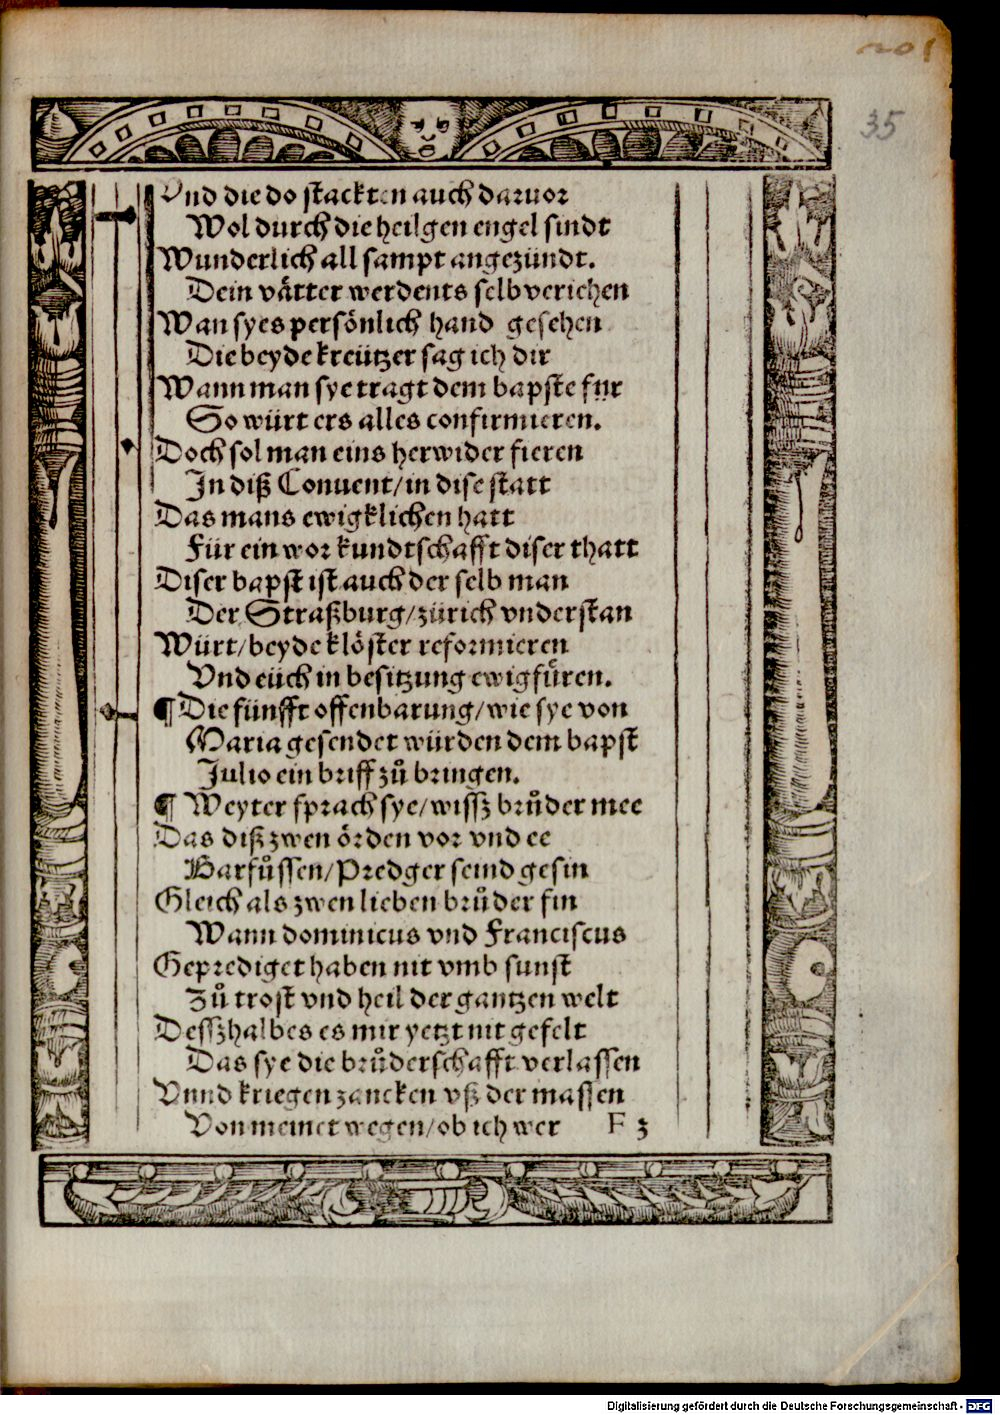 201
35
Vnd die do stackten auch daruor
Wol durch die heilgen engel sindt
Wunderlich all sampt angezündt.
Dein vaͤtter werdents selb veriehen
Wan syes persoͤnlich hand gesehen
Die beyde kreützer sag ich dir
Wann man sye tragt dem bapste fur
So würt ers alles confirmieren.
Doch sol man eins herwider fieren
In diß Conuent/in dise statt
Das mans ewigklichen hatt
Für ein wor kundtschafft diser thatt
Diser bapst ist auch der selb man
Der Straßburg/zürich vnderstan
Würt/beyde kloͤster reformieren
Vnd eüch in besitzung ewig fuͤren.
¶ Die fünfft offenbarung/wie sye von
Maria gesendet würden dem bapst
Julio ein briff zuͦ bringen.
¶ Weyter sprach sye/wissz bruͦder mee
Das diß zwen oͤrden vor vnd ee
Barfuͦssen/Predger seind gesin
Gleich als zwen lieben bruͦder fin
Wann dominicus vnd Franciscus
Geprediget haben nit vmb sunst
Zuͦ trost vnd heil der gantzen welt
Dessz halbes es mir yetzt nit gefelt
Das sye die bruͦderschafft verlassen
Vnnd kriegen zancken vß der massen
Von meinet wegen/ob ich wer F 3
Digitalisierung gefördert durch die Deutsche Forschungsgemeinschaft - DFG